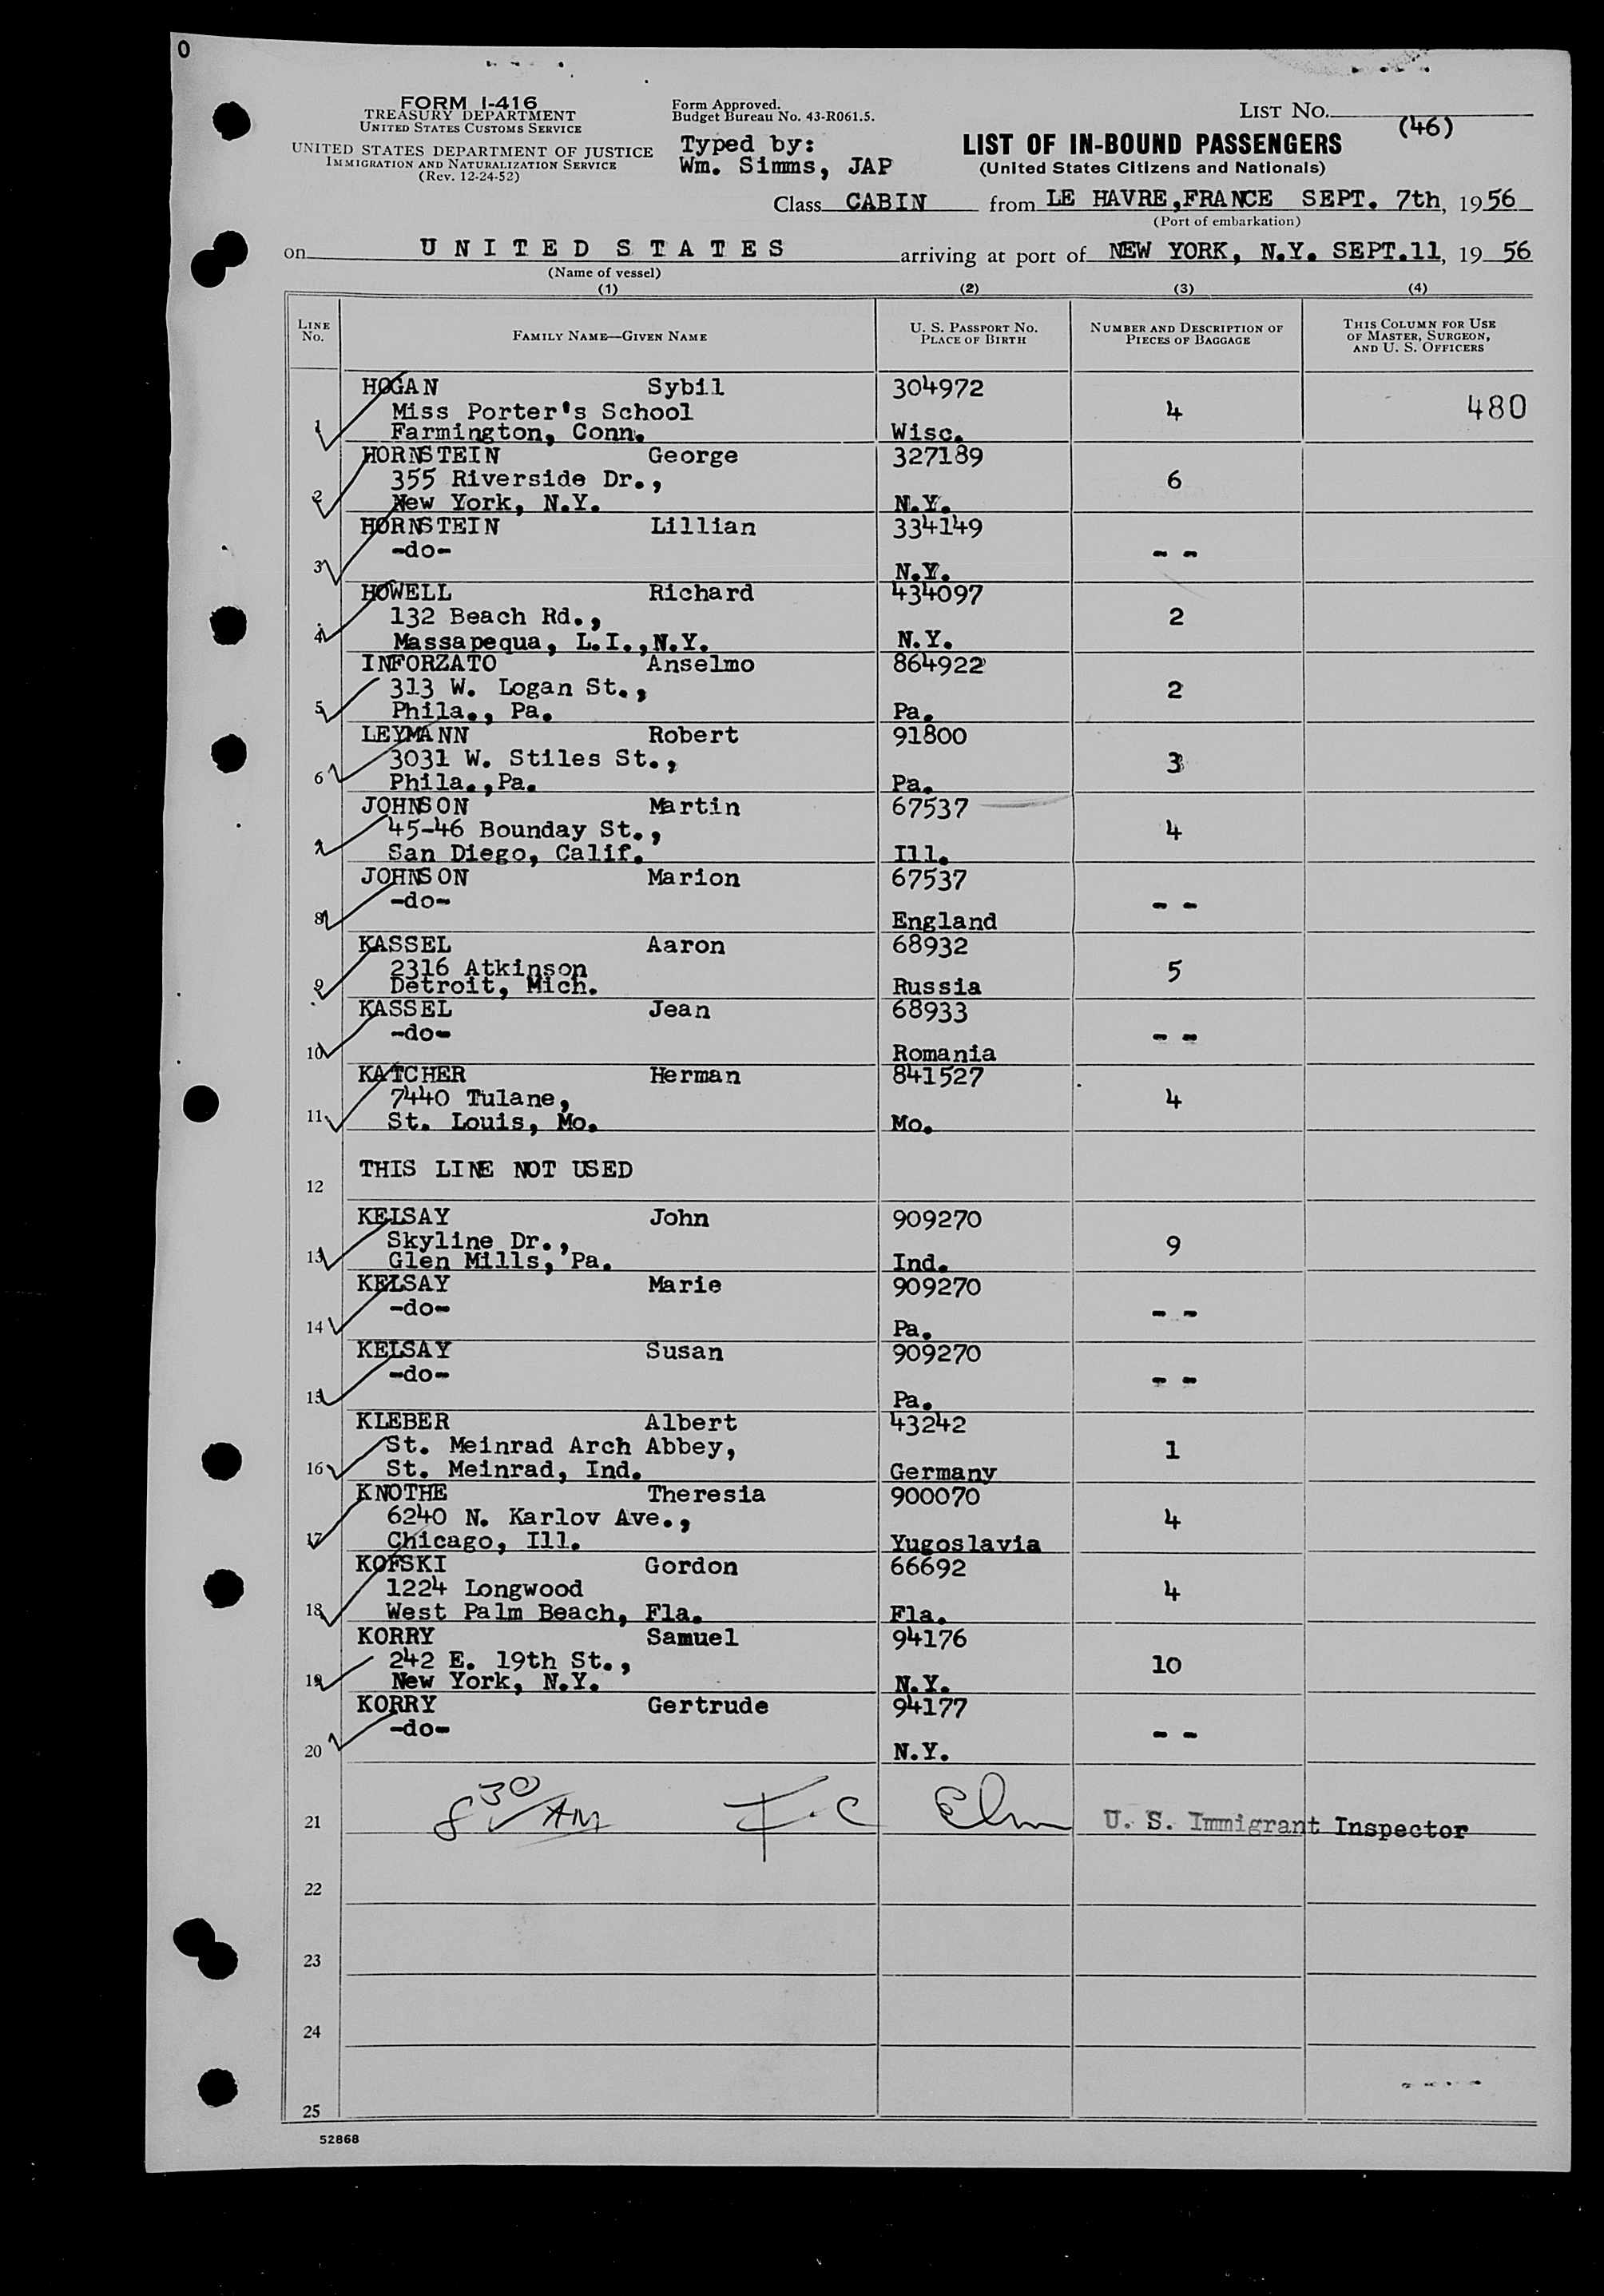 0
FORM I-416
TREASURY DEPARTMENT
UNITED STATES CUSTOMS SERVICE
UNITED STATES DEPARTMENT OF JUSTICE
IMMIGRATION AND NATURALIZATION SERVICE
(Rev. 12-24-52)
Form Approved.
Budget Bureau No. 43-R061.5.
Typed by:
Wm. Simms, JAP
LIST NO.
(46)
LIST OF IN-BOUND PASSENGERS
(United States Citizens and Nationals)
Class CABIN from LE HAVRE,FRANCE SEPT. 7th, 1956
(Port of embarkation)
on UNITED STATES arriving at port of NEW YORK, N.Y. SEPT.11, 19 56
(Name of vessel)
(1) (2) (3) (4)
LINE NO. FAMILY NAME—GIVEN NAME U. S. PASSPORT NO. PLACE OF BIRTH NUMBER AND DESCRIPTION OF PIECES OF BAGGAGE THIS COLUMN FOR USE OF MASTER, SURGEON, AND U. S. OFFICERS
HOGAN Sybil 304972
Miss Porter's School 4 480
1 Farmington, Conn. Wisc.
HORNSTEIN George 327189
355 Riverside Dr., 6
2 New York, N.Y. N.Y.
HORNSTEIN Lillian 334149
-do- - -
3 N.Y.
HOWELL Richard 434097
132 Beach Rd., 2
4 Massapequa, L.I.,N.Y. N.Y.
INFORZATO Anselmo 864922
313 W. Logan St., 2
5 Phila., Pa. Pa.
LEYMANN Robert 91800
3031 W. Stiles St., 3
6 Phila.,Pa. Pa.
JOHNSON Martin 67537
45-46 Bounday St., 4
7 San Diego, Calif. Ill.
JOHNSON Marion 67537
-do- - -
8 England
KASSEL Aaron 68932
2316 Atkinson 5
9 Detroit, Mich. Russia
KASSEL Jean 68933
-do- - -
10 Romania
KATCHER Herman 841527
7440 Tulane, 4
11 St. Louis, Mo. Mo.
THIS LINE NOT USED
12
KELSAY John 909270
Skyline Dr., 9
13 Glen Mills, Pa. Ind.
KELSAY Marie 909270
-do- - -
14 Pa.
KELSAY Susan 909270
-do- - -
15 Pa.
KLEBER Albert 43242
St. Meinrad Arch Abbey, 1
16 St. Meinrad, Ind. Germany
KNOTHE Theresia 900070
6240 N. Karlov Ave., 4
17 Chicago, Ill. Yugoslavia
KOFSKI Gordon 66692
1224 Longwood 4
18 West Palm Beach, Fla. Fla.
KORRY Samuel 94176
242 E. 19th St., 10
19 New York, N.Y. N.Y.
KORRY Gertrude 94177
-do- - -
20 N.Y.
21 8 30 AM F.C U. S. Immigrant Inspector
22
23
24
25
52868